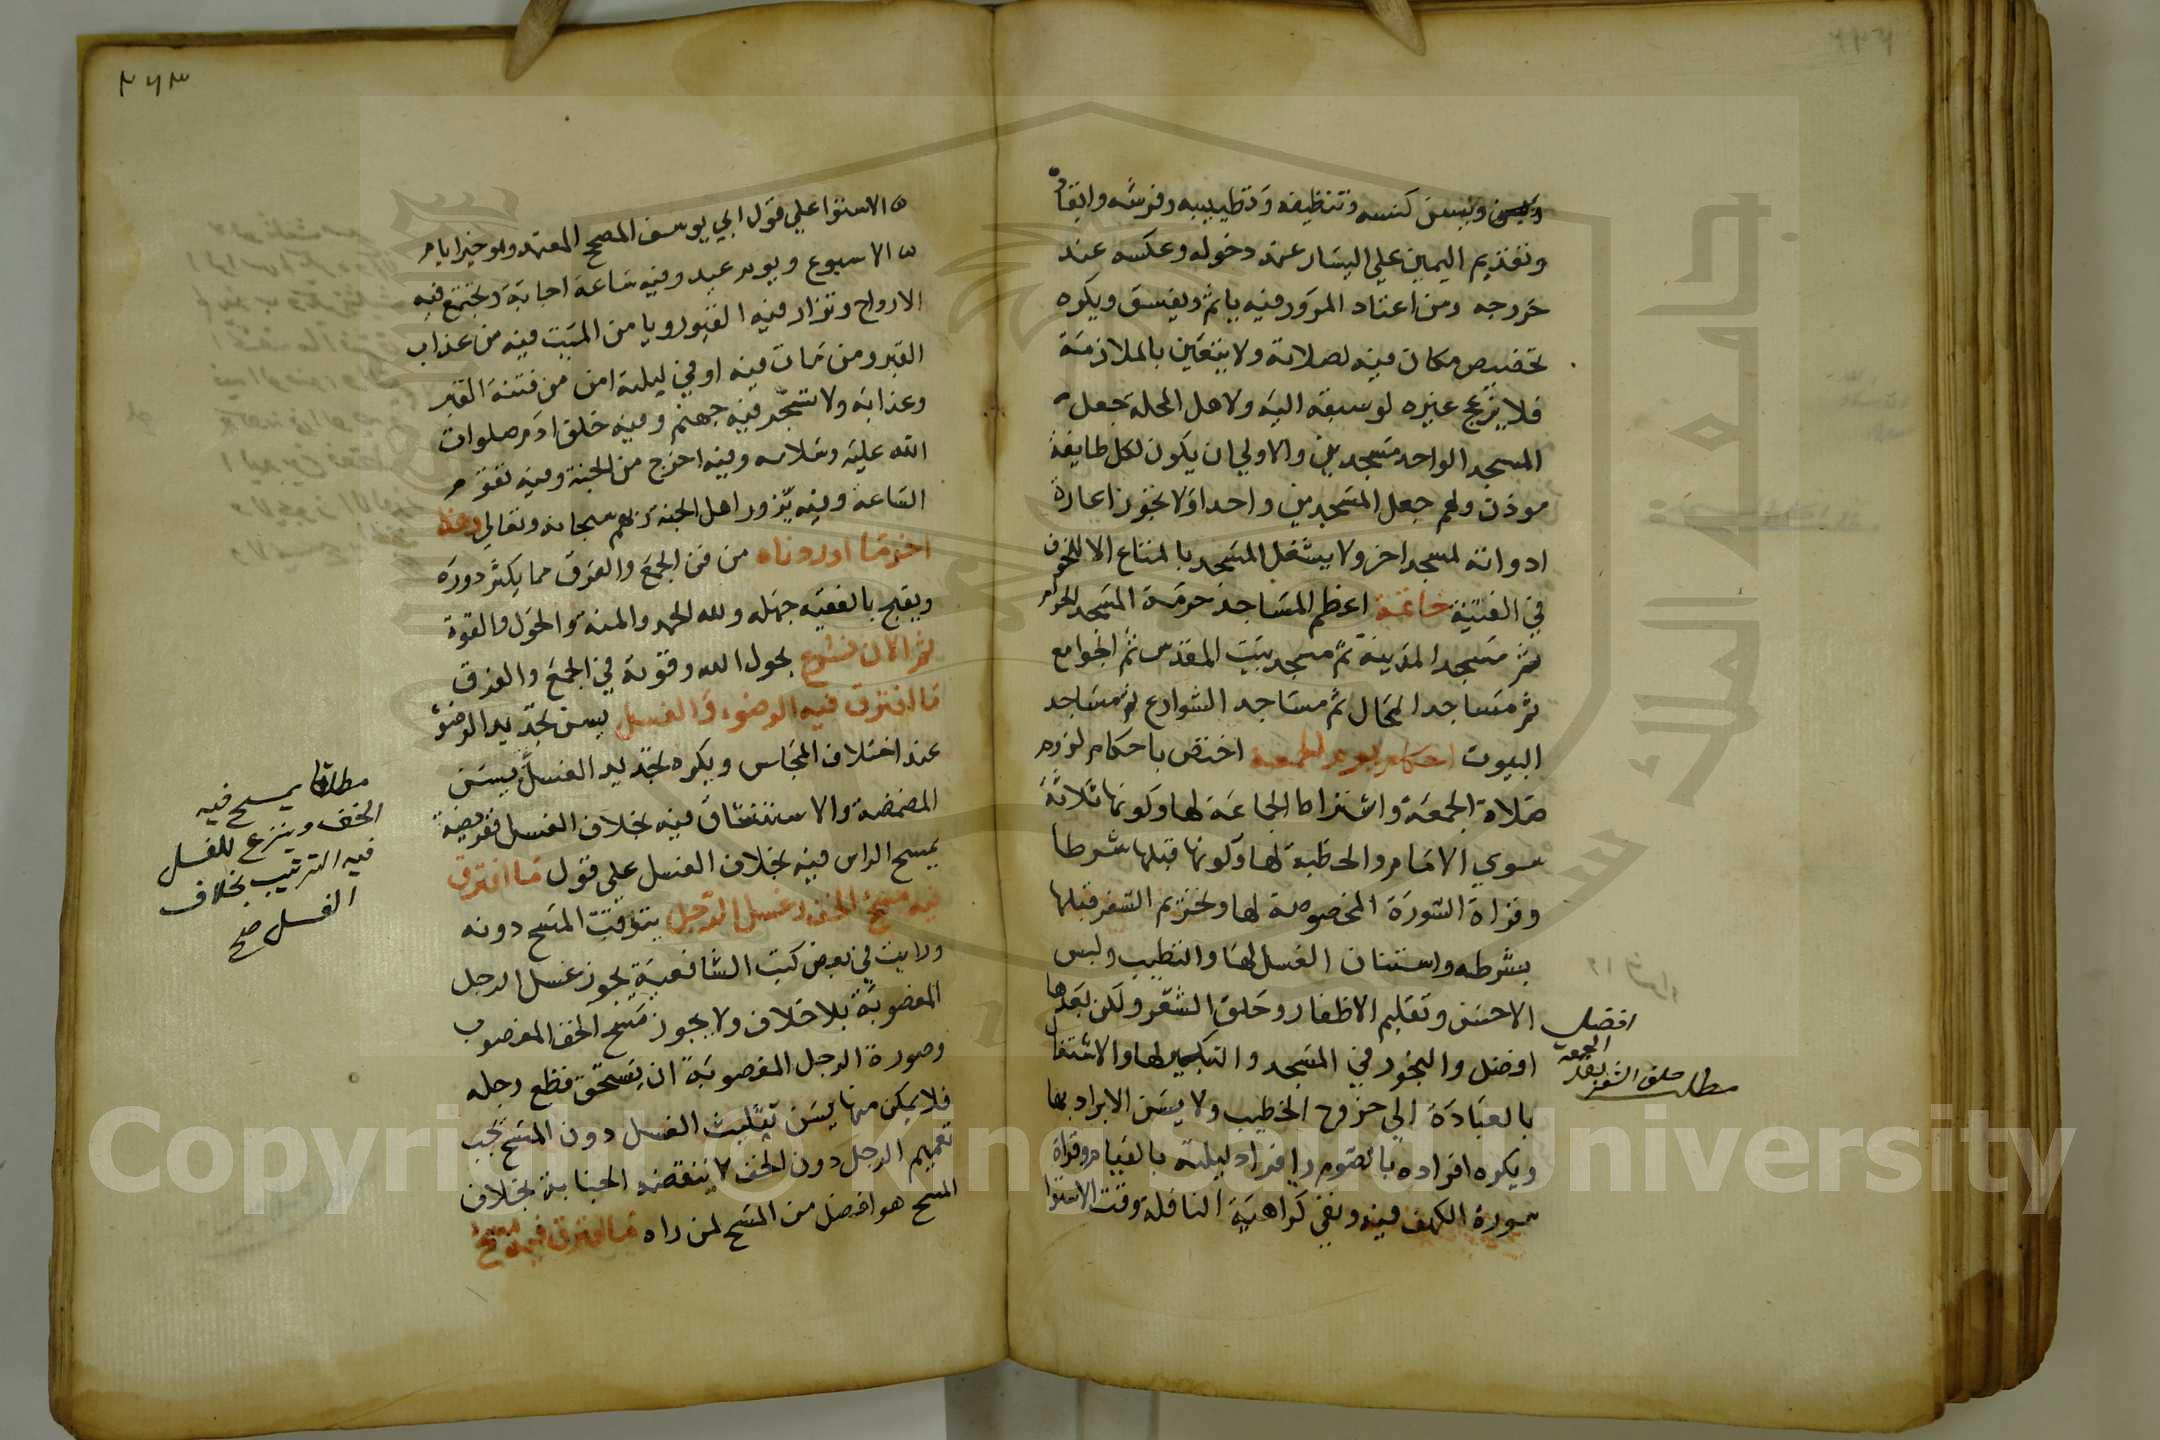 ويسن كنسه وتنظيفه وتطييبه وفرشه وايقاده
وتقديم اليمين علي اليسار عند دخوله وعكسه عند
خروجه ومن اعتاد المرور فيه ياثم ويفسق ويكره
تخصيص مكان فيه لصلاته ولا يتعين بالملازمة
فلا يزعج غيره لو سبقه اليه ولاهل المحله جعل
المسجد الواحد مسجدين والاولي ان يكون لكل طايفة
موذن ولهم جعل المسجدين واحدا ولا تجوز اعارة
ادواته لمسجد اخر ولا يشغل المسجد بالمتاع الا للخوف
في الفتنة خاتمة اعظم المساجد حرمة المسجد الحرام
ثم مسجد المدينة ثم مسجد بيت المقدس ثم الجوامع
ثم مساجد المحال ثم مساجد الشوارع ثم مساجد
البيوت احكام يوم الجمعة اختص باحكام لزوم
صلاة الجمعة واشتراط الجماعة لها وكونها ثلاثة
سوي الامام والخطبة لها وكونها قبلها شرطا
وقراة السورة المخصوصة لها وتحريم السفر قبلها
بشرطه واستنان الغسل لها والتطيب ولبس
الاحسن وتقليم الاظفار وحلق الشعر ولكن بعدها
افضل والبخور في المسجد والتبكير لها والاشتغال
بالعبادة الي خروج الخطيب ولا يسن الابراد بها
ويكره افراده بالصوم وافراد ليلته بالقيام وقراة
سورة الكهف فيه ونفي كراهية النافلة وقت الاستوا
افضل
الجمعة
مطلب حلق الشعر بعد
٣٦٣
الاستوا علي قول ابي يوسف المصحح المعتمد وهو خير ايام
الاسبوع ويوم عيد وفيه ساعة اجابة وتجتمع فيه
الارواح وتزار فيه القبور ويامن الميت فيه من عذاب
القبر ومن مات فيه او في ليلته امن من فتنة القبر
وعذابه ولا تسجر فيه جهنم وفيه خلق ادم صلوات
الله عليه وسلامه وفيه اخرج من الجنة وفيه تقوم
الساعة وفيه يزور اهل الجنة ربهم سبحانه وتعالي وهذا
اخر ما اوردناه من فن الجمع والفرق مما يكثر دوره
ويقبح بالفقيه جهله ولله الحمد والمنة والحول والقوة
ثم الان نشرع بحول الله وقوته في الجمع والفرق
ما افترق فيه الوضوء والغسل يسن تجديد الوضو
عند اختلاف المجاس ويكره تجديد الغسل يسن
المضمضة والاستنشاق فيه بخلاف الغسل ففريضة
يمسح الراس فيه بخلاف الغسل علي قول ما افترق
فيه مسح الخف وغسل الرجل يتوقت المسح دونه
ورايت في بعض كتب الشافعية يجوز غسل الرجل
المغصوبة بلا خلاف ولا يجوز مسح الخف المغصوب
وصورة الرجل المغصوبة ان يستحق قطع رجله
فلا يمكن منها يسن تثليث الغسل دون المسح يجب
تعميم الرجل دون الخف لا ينقضه الجنابة بخلاف
المسح هو افضل من المسح لمن راه ما افترق فيه مسح
يمسح فيه
الخف وينزع للغسل
فيه الترتيب بخلاف
الغسل صح
Copyright © King Saud University